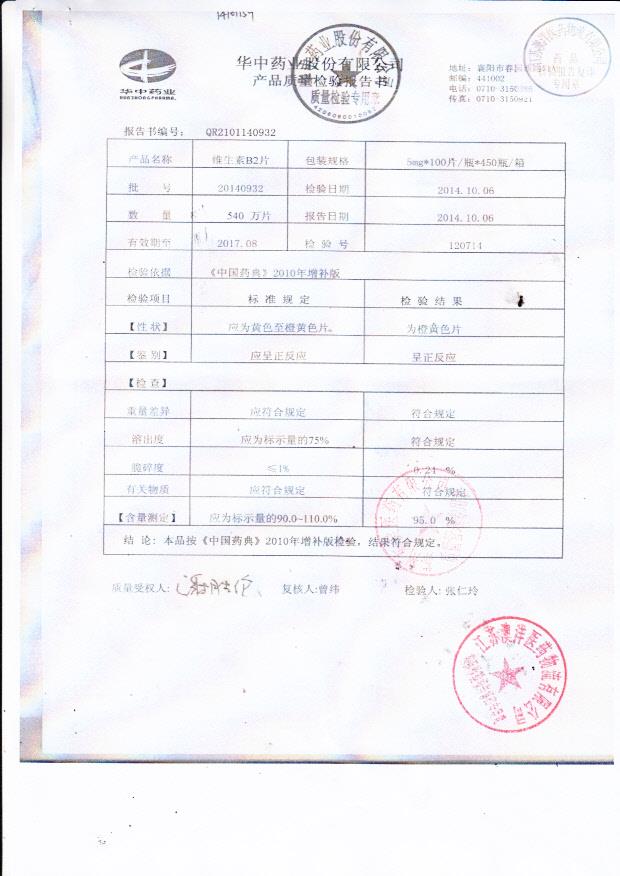 华中药业
HUAZHONG PHARMA
华中药业股份有限公司
产品质量检验报告书
质量检验专用章
地址：襄阳市春园
邮编：441002
电话：0710-3150
传真：0710-3150821
药品
专用章
报告书编号： QR2101140932
产品名称 维生素B2片 包装规格 5mg*100片/瓶*450瓶/箱
批 号 20140932 检验日期 2014.10.06
数 量 540 万片 报告日期 2014.10.06
有效期至 2017.08 检 验 号 120714
检验依据 《中国药典》2010年增补版
检验项目 标 准 规 定 检 验 结 果
【性状】 应为黄色至橙黄色片。 为橙黄色片
【鉴别】 应呈正反应 呈正反应
【检查】
重量差异 应符合规定 符合规定
溶出度 应为标示量的75% 符合规定
脆碎度 ≤1% 0.21 %
有关物质 应符合规定 符合规定
【含量测定】 应为标示量的90.0~110.0% 95.0 %
结 论：本品按《中国药典》2010年增补版检验，结果符合规定。
质量受权人： 复核人:曾纬 检验人：张仁玲
江苏澳洋医药物流有限公司